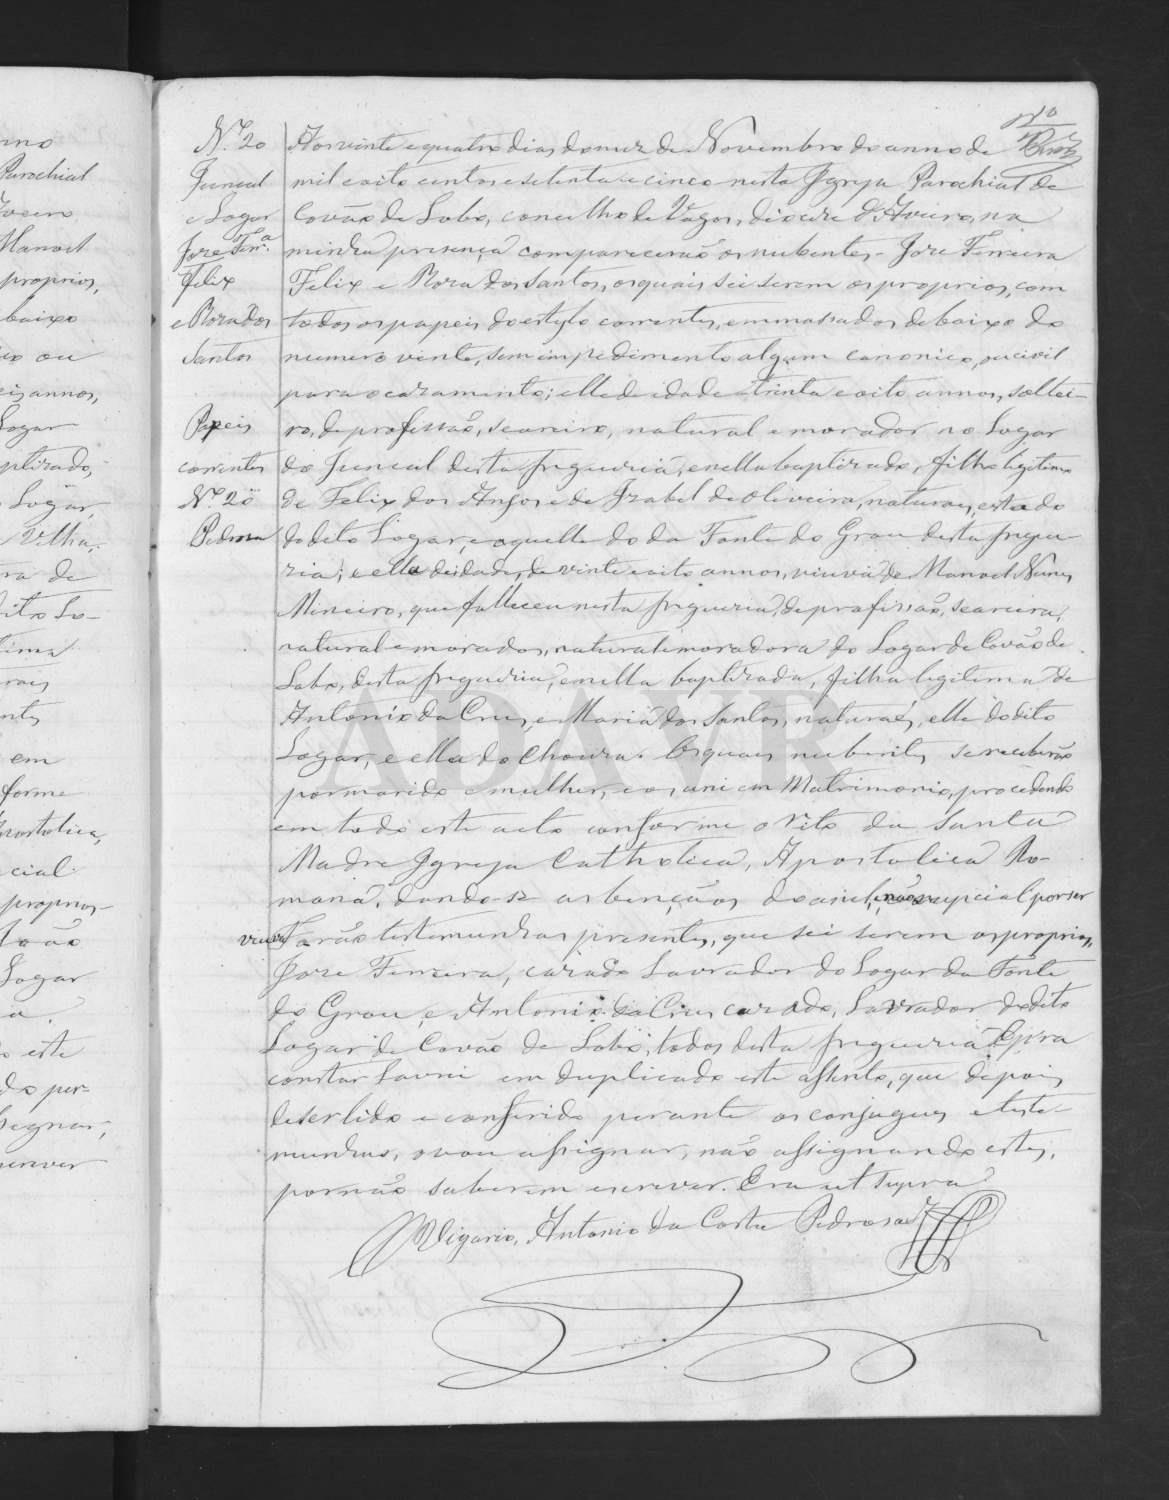 N.º 20
Juncal
e Logar
Joze Ferr.ª
Felix
e Roza dos
Santos
Papeis
correntes
N.º 20
Pedroza
Aos vinte e quatro dias do mez de Novembro do anno de
mil e oito centos e setenta e cinco nesta Igreja Parochial de
Covão do Lobo, concelho de Vagos, diocese d'Aveiro, na
minha presença comparecerão os nubentes - Joze Ferreira
Felix e Roza dos Santos, os quais sei serem os proprios, com
todos os papeis do estylo correntes, emmassados debaixo do
numero vinte, sem impedimento algum canonico, ou civil
para o cazamento; elle de idade trinta e oito annos, soltei-
ro, de profissão, seareiro, natural e morador no Logar
do Juncal desta freguezia, e nella baptizado, filho legitimo
de Felix dos Anjos e de Izabel de Oliveira, naturaes, esta do
do dito Logar, e aquelle do da Fonte do Grou desta fregue-
zia; e ella de idade, de vinte e oito annos, viuva de Manoel Nunes
Mineiro, que falleceu nesta freguezia, de profissão, seareira,
natural e morador, natural e moradora do Logar de Covão do
Lobo, desta freguezia, e nella baptizada, filha legitima de
Antonio da Cruz, e Maria dos Santos, naturaes, elle do dito
Logar, e ella do Chouza. Os quaes nubentes se receberão
por marido e mulher, e os uni em Matrimonio, procedendo
em todo este acto conforme o rito da Santa
Madre Igreja Catholica, Apostolica Ro-
mana, dando-se as bençãos do anel, e não nupcial por ser
viuva Forão testemunhas presentes, que sei serem os proprios,
Joze Ferreira, cazado Lavrador do Logar da Fonte
do Grou, e Antonio da Cruz cazado, Lavrador do dito
Logar de Covão do Lobo, todos desta freguezia E p.ra
constar Lavrei em duplicado este assento, que depois
de ser lido e conferido perante os conjuges e teste-
munhas, o vou assignar, não assignando estes,
por não saberem escrever. Era ut supra
O Vigario, Antonio da Costa Pedroza
nno
Parochial
Manoel
proprios,
baixo
ou
annos,
Logar
ptizado,
Logar,
Velha,
ra de
dito Lo-
tima
raes
ntes
em
forme
postolica,
cial
proprios
João
Logar
a.
este
do per-
segnar,
crever